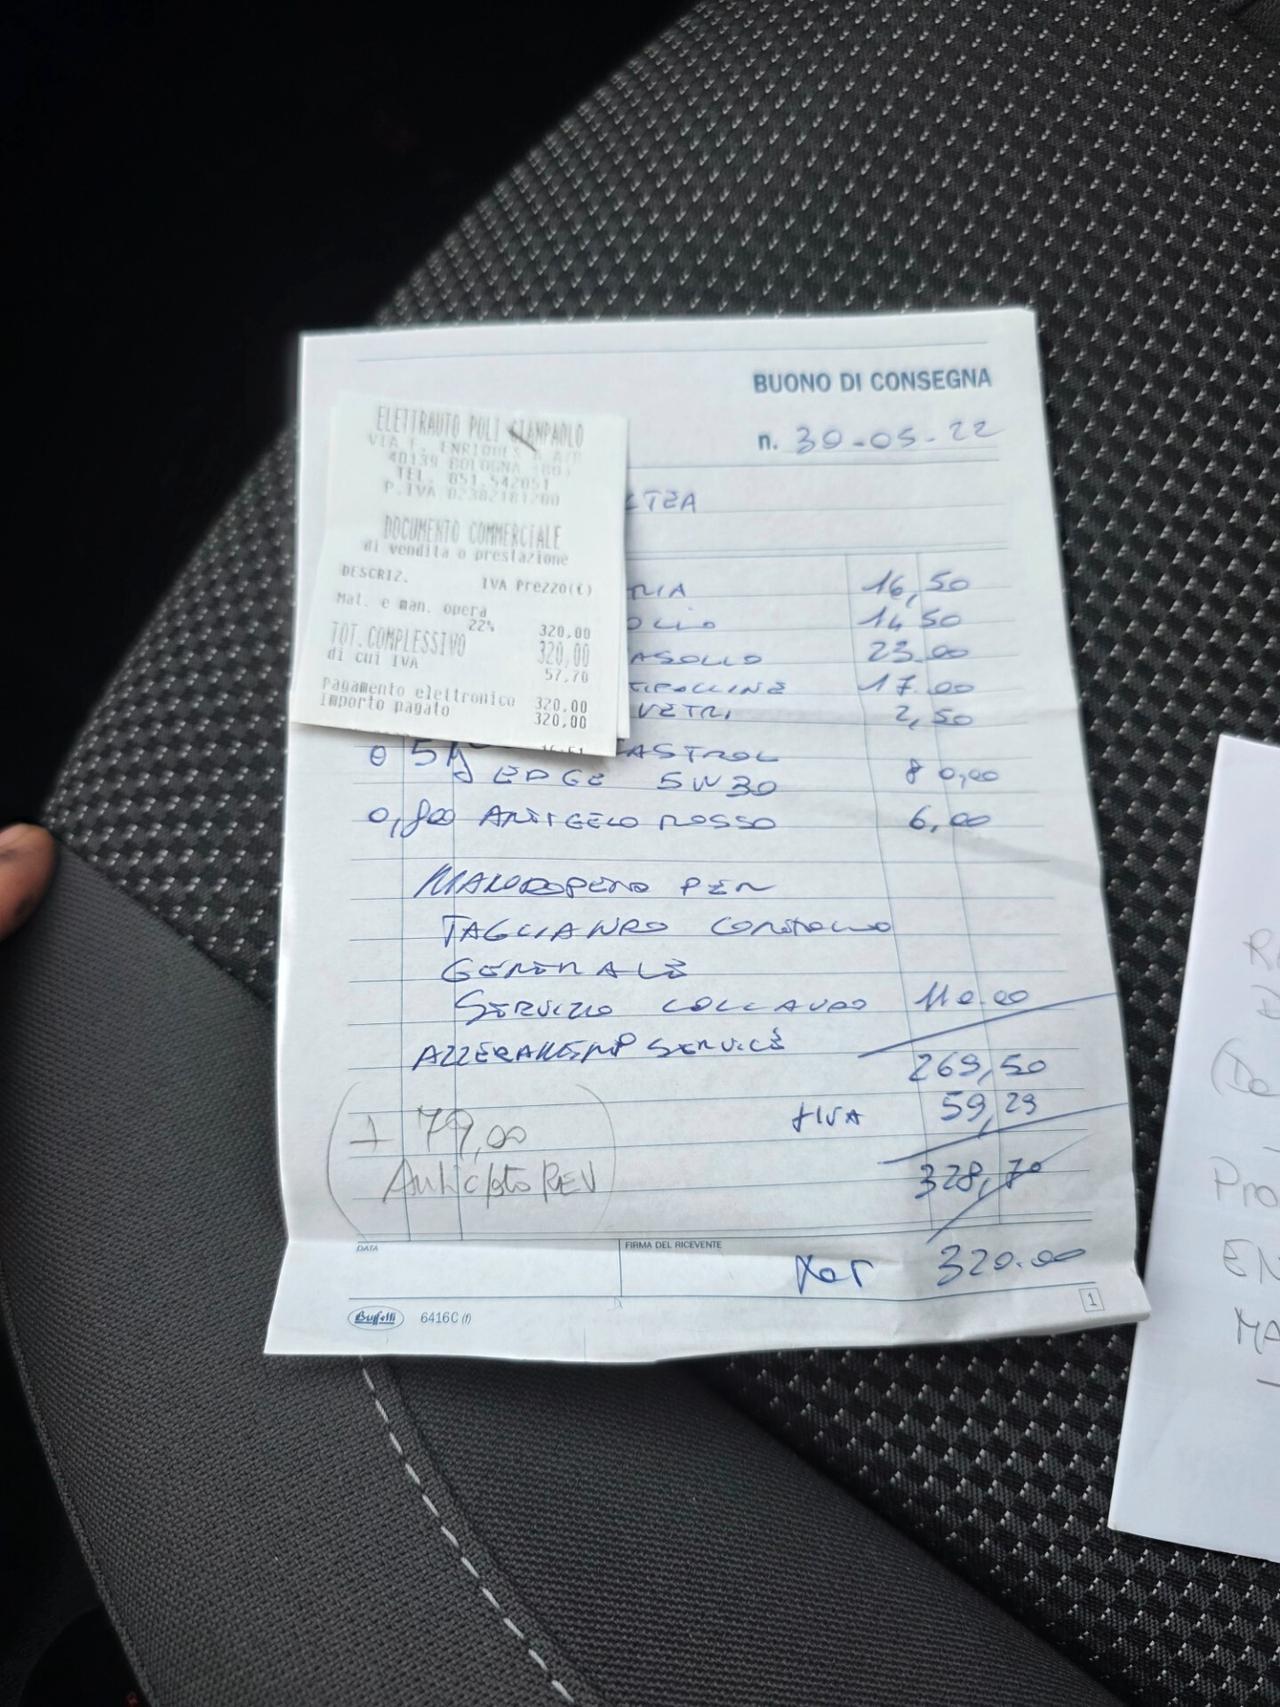 BUONO DI CONSEGNA
n. 30-05-22
ELETTRAUTO POLI GIANPAOLO
VIA F. ENRIQUES
40139 BOLOGNA (BO)
TEL. 051.542051
P.IVA 02382181200
DOCUMENTO COMMERCIALE
di vendita o prestazione
DESCRIZ. IVA Prezzo(€)
Mat. e man. opera
22% 320,00
TOT.COMPLESSIVO 320,00
di cui IVA 57,70
Pagamento elettronico 320,00
Importo pagato 320,00
LTEA
RIA 16,50
OLIO 14,50
ASOLIO 23.00
TIPOLLINE 17.00
VETRI 2,50
ASTROL
EDGE 5W30 80,00
0,800 ANTIGELO ROSSO 6,00
MANODOPERO PER
TAGLIANRO CONTROLLO
GENERALE
SERVIZIO COLLAUDO 110.00
AZZERAMENTO SERVICE
269,50
+IVA 59,29
328,70
+ 79,00
Anticipato REV
DATA
FIRMA DEL RICEVENTE
320.00
Buffetti 6416C (f)
1
Pro
EN
MA